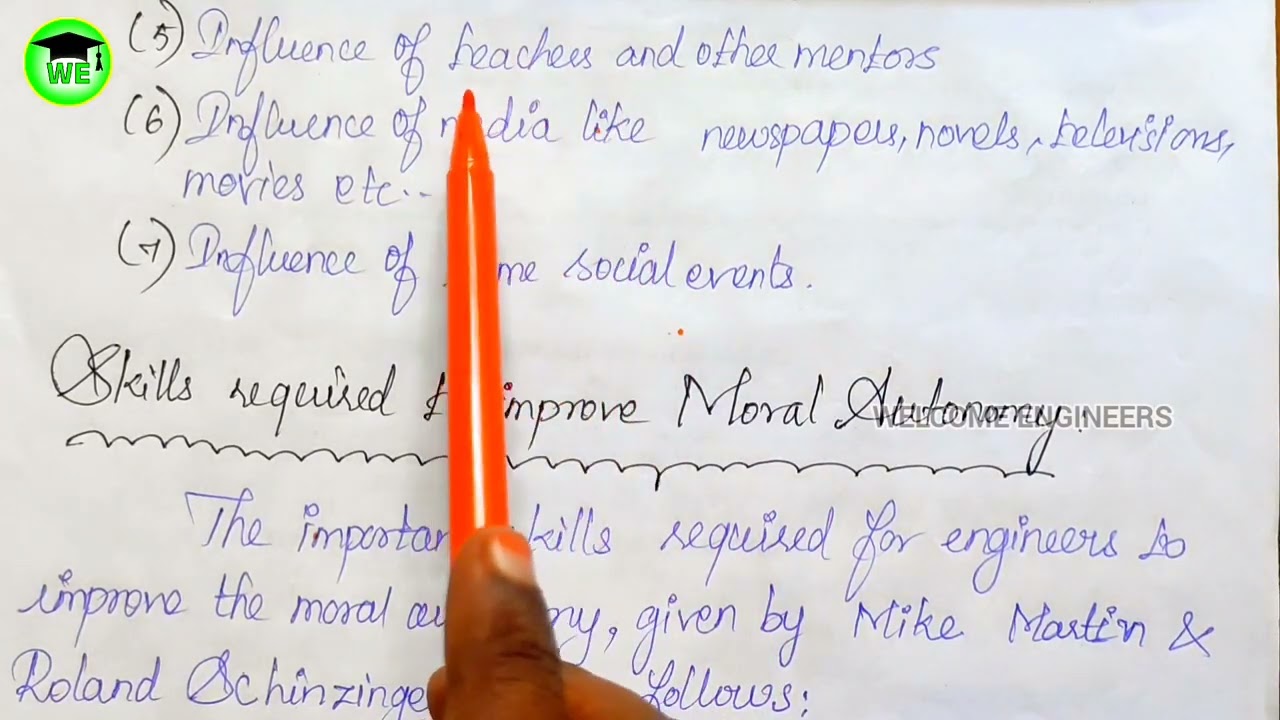 WE
(5) Influence of teachers and other mentors
(6) Influence of media like newspapers, novels, televisions,
movies etc...
(7) Influence of social events.
Skills required improve Moral Autonomy:
WELCOME ENGINEERS
The important skills required for engineers to
improve the moral given by Mike Martin &
Roland Schinzinge follows: